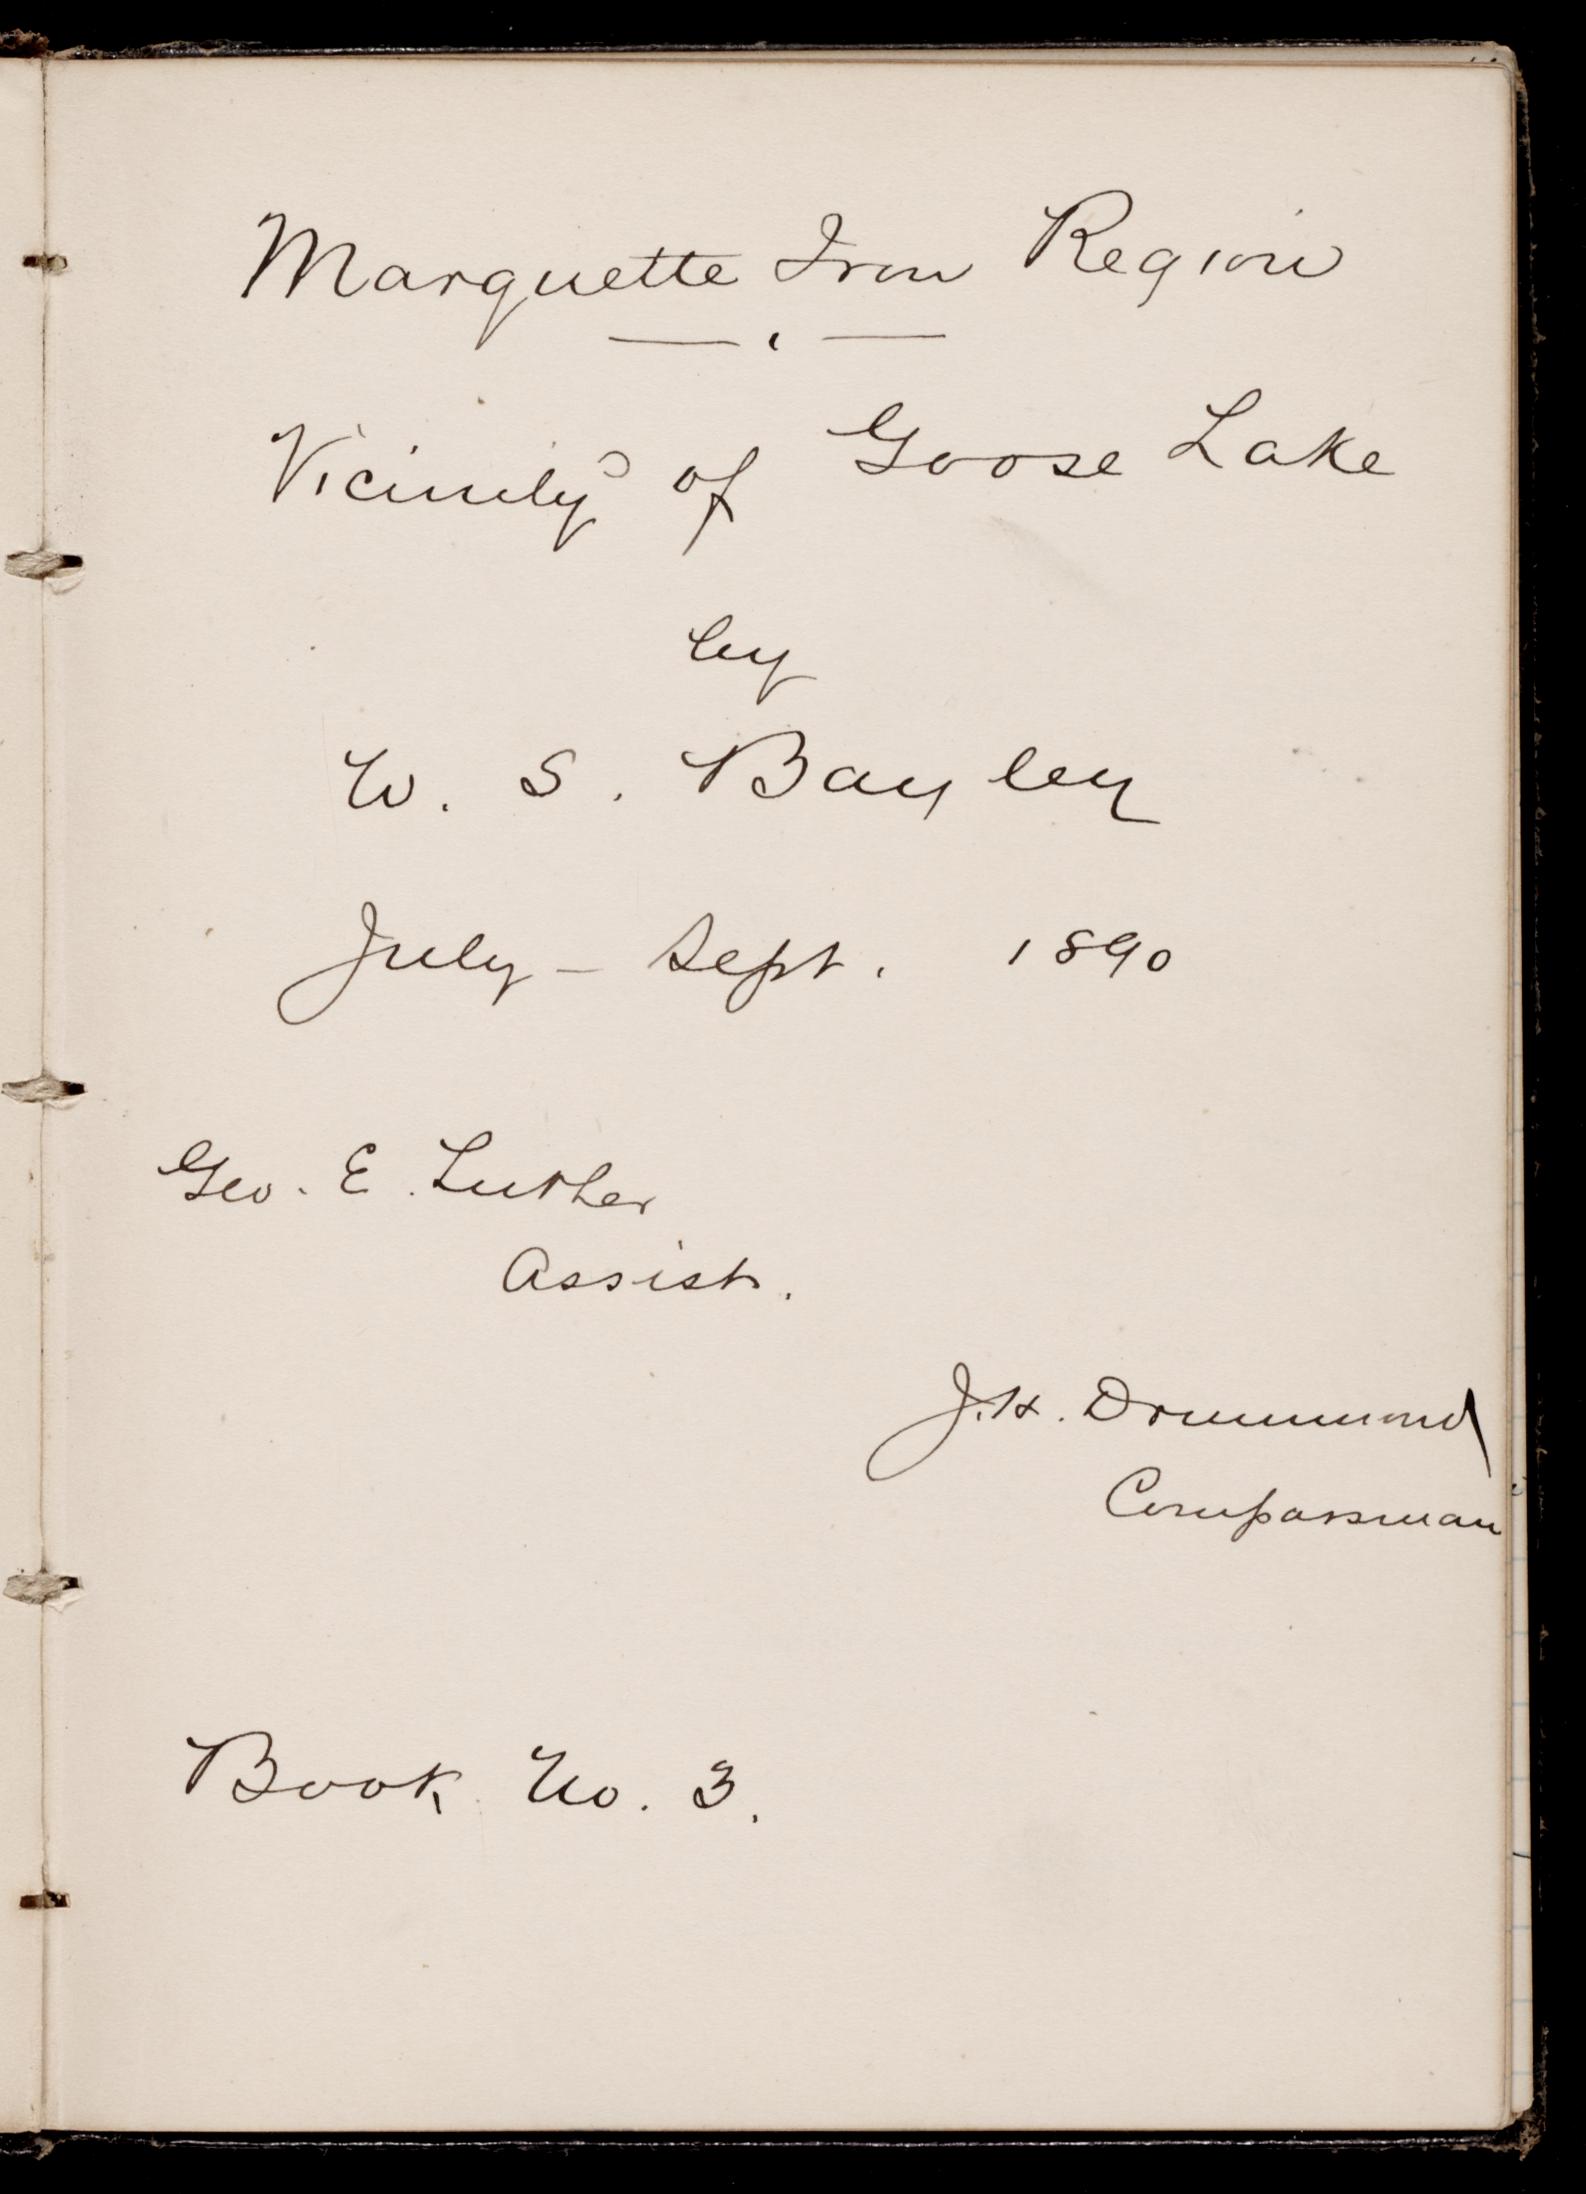 Marquette Iron Region
Vicinity of Goose Lake
by
W. S. Bayley
July - Sept. 1890
Geo. E. Luther
Assist.
J. H. Drummond
Compassman
Book No. 3.